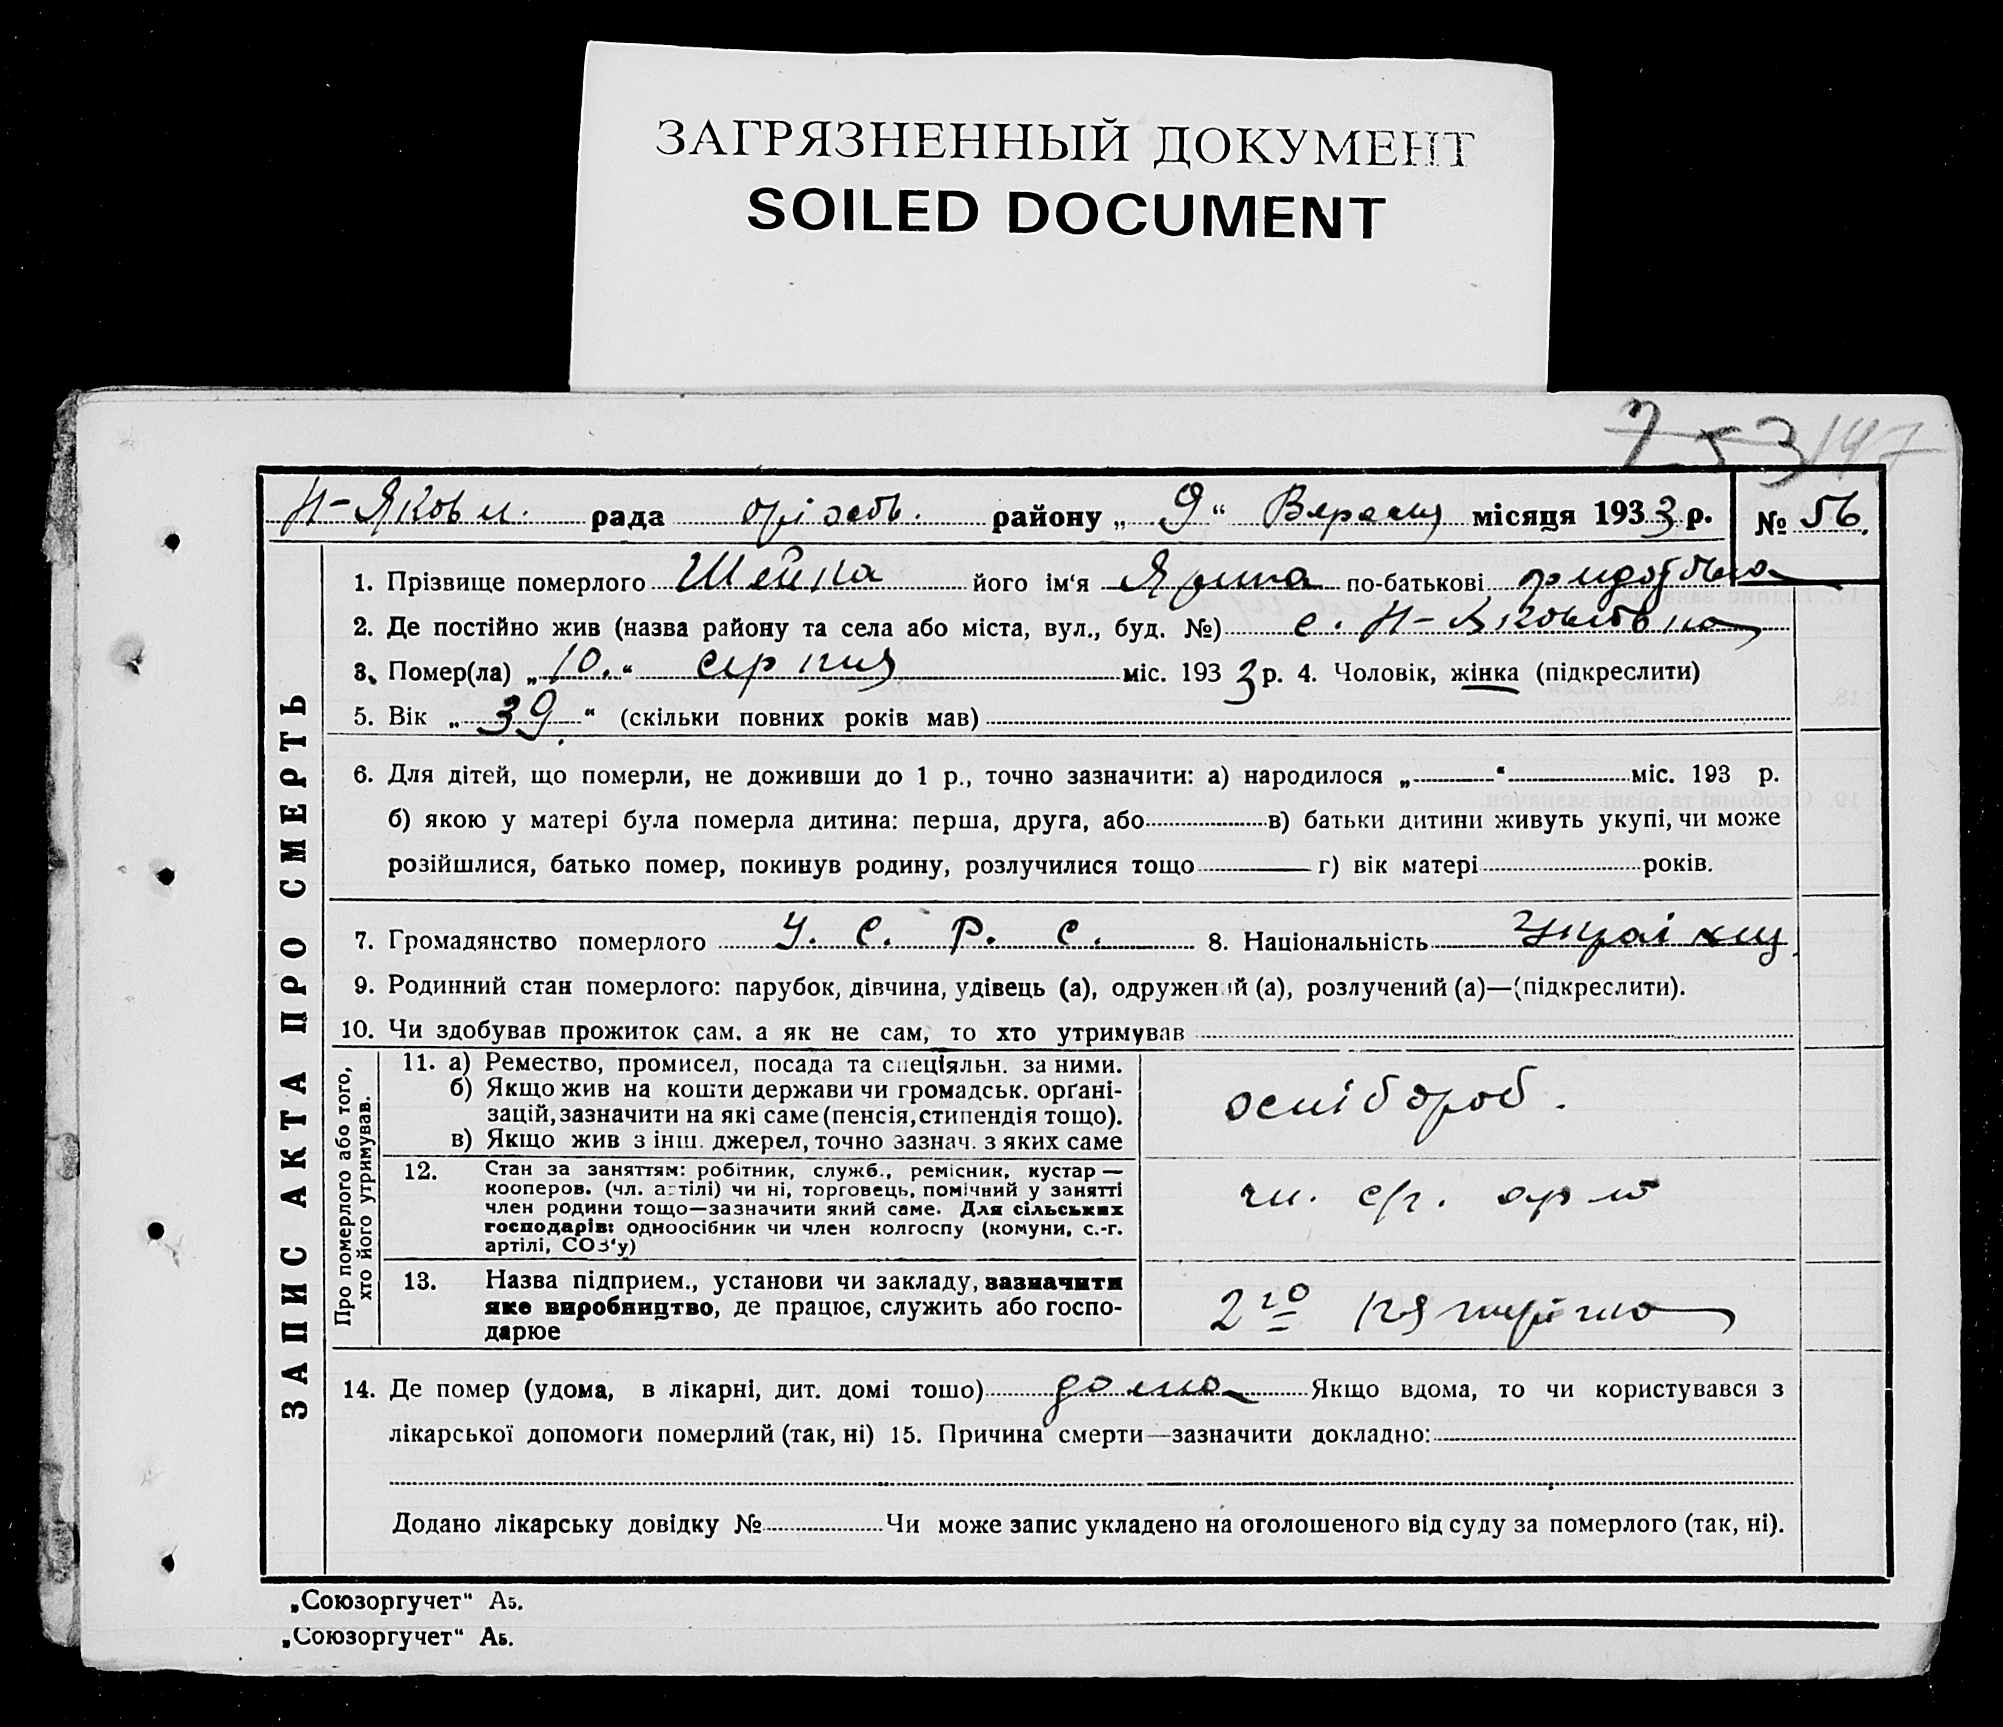 ЗАГРЯЗНЕННЫЙ ДОКУМЕНТ
SOILED DOCUMENT
253 147
Н-Яковл. рада оріхов. району „ 9 “ Вересня місяця 1933 р. № 56.
ЗАПИС АКТА ПРО СМЕРТЬ
1. Прізвище померлого Шейка його ім‘я Ярина по-батькові
2. Де постійно жив (назва району та села або міста, вул., буд. №) с. Н-Яковлівка
3. Помер(ла) „ 10. “ серпня міс. 1933 р. 4. Чоловік, жінка (підкреслити)
5. Вік „ 39 “ (скільки повних років мав)
6. Для дітей, що померли, не доживши до 1 р., точно зазначити: а) народилося „ “ міс. 193 р.
б) якою у матері була померла дитина: перша, друга, або в) батьки дитини живуть укупі, чи може
розійшлися, батько помер, покинув родину, розлучилися тощо г) вік матері років.
7. Громадянство померлого У. С. Р. С. 8. Національність
9. Родинний стан померлого: парубок, дівчина, удівець (а), одружений (а), розлучений (а)—(підкреслити).
10. Чи здобував прожиток сам. а як не сам, то хто утримував
Про померлого або того,
хто його утримував.
11. а) Ремество, промисел, посада та спеціяльн. за ними.
б) Якщо жив на кошти держави чи громадськ. орґані-
зацій, зазначити на які саме (пенсія, стипендія тощо).
в) Якщо жив з інш. джерел, точно зазнач. з яких саме
12. Стан за заняттям: робітник, служб., ремісник, кустар—
кооперов. (чл. артілі) чи ні, торговець, помічний у занятті
член родини тощо—зазначити який саме. Для сільських
господарів: одноосібник чи член колгоспу (комуни, с.-г.
артілі, СОЗ‘у)
13. Назва підприєм., установи чи закладу, зазначити
яке виробництво, де працює, служить або госпо-
дарює
14. Де помер (удома, в лікарні, дит. домі тошо) дома Якщо вдома, то чи користувався з
лікарської допомоги померлий (так, ні) 15. Причина смерти—зазначити докладно:
Додано лікарську довідку № Чи може запис укладено на оголошеного від суду за померлого (так, ні).
„Союзоргучет“ А5.
„Союзоргучет“ А5.